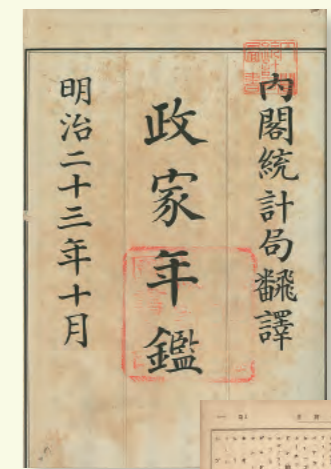 内閣統計局飜譯
政家年鑑
明治二十三年十月